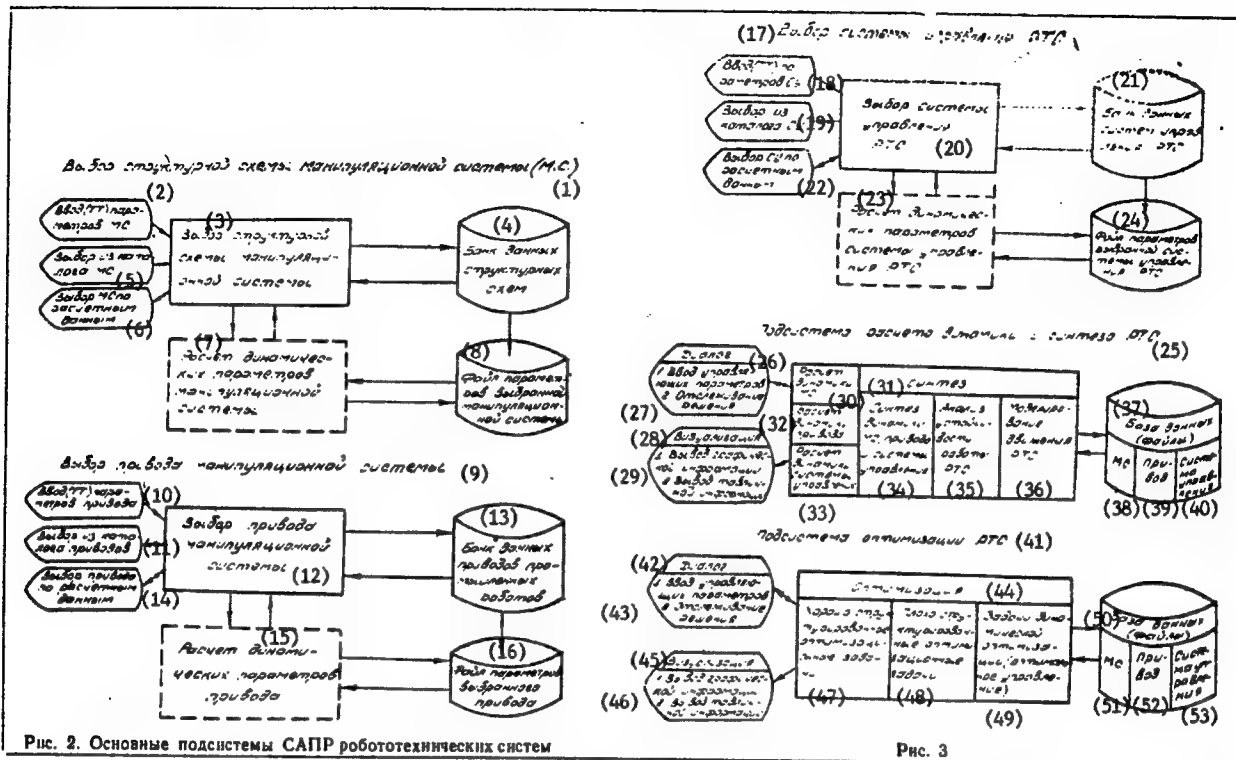 Выбор структурной схемы манипуляционной системы (М.С.)
(1)
(2)
Ввод (ТТ) пара-
метров МС
(3)
Выбор структурной
схемы манипуляци-
онной системы
(4)
Банк данных
структурных
схем
Выбор из ката
лога МС
(5)
Выбор МС по
расчетным
данным
(6)
(7)
Расчет динамичес-
ких параметров
манипуляционной
системы
(8)
Файл парамет-
ров выбранной
манипуляцион-
ной системы
Выбор привода манипуляционной системы
(9)
Ввод (ТТ) пара-
метров привода
(10)
Выбор из ката
лога приводов
(11)
Выбор привода
манипуляционной
системы
(12)
(13)
Банк данных
приводов про-
мышленных
роботов
Выбор привода
по расчетным
данным
(14)
(15)
Расчет динами-
ческих параметров
привода
(16)
Файл параметров
выбранного
привода
Рис. 2. Основные подсистемы САПР робототехнических систем
(17)
Выбор системы управления РТС
Ввод (ТТ) па
раметров СУ
(18)
Выбор из
каталога СУ
(19)
Выбор системы
управления
РТС
(20)
(21)
Банк данных
систем управ
ления РТС
Выбор СУ по
расчетным
данным
(22)
(23)
Расчет динамичес-
ких параметров
системы управле-
ния РТС
(24)
Файл параметров
выбранной сис-
темы управле-
ния РТС
Подсистема расчета динамики и синтеза РТС
(25)
Диалог
(26)
1 Ввод управля-
ющих параметров
2 Отслеживание
решения
(27)
(28)
Визуализация
1 Вывод графичес-
кой информации
2 Вывод таблич-
ной информации
(29)
Расчет
динамики
МС
(30)
(31)
Синтез
(32)
Расчет
динамики
привода
Расчет
динамики
системы
управления
(33)
Синтез
динамики
МС, привода
и системы
управления
(34)
Анализ
устойчи-
вости
работы
РТС
(35)
Моделиро-
вание
движения
РТС
(36)
(37)
База данных
(файлы)
МС
При
вод
Систе
ма
управ
ления
(38)
(39)
(40)
Подсистема оптимизации РТС
(41)
(42)
Диалог
1 Ввод управляю-
щих параметров
2 Отслеживание
решения
(43)
Оптимизация
(44)
(45)
Визуализация
1 Вывод графичес-
кой информации
2 Вывод таблич-
ной информации
(46)
Хорошо струк
турированные
оптимизаци-
онные зада-
чи
(47)
Плохо стру
ктурирован-
ные оптими
зационные
задачи
(48)
Задачи дина-
мической
оптимиза-
ции (оптималь
ное управле-
ние)
(49)
(50)
База данных
(файлы)
МС
При
вод
Систе
ма уп
равле
ния
(51)
(52)
(53)
Рис. 3